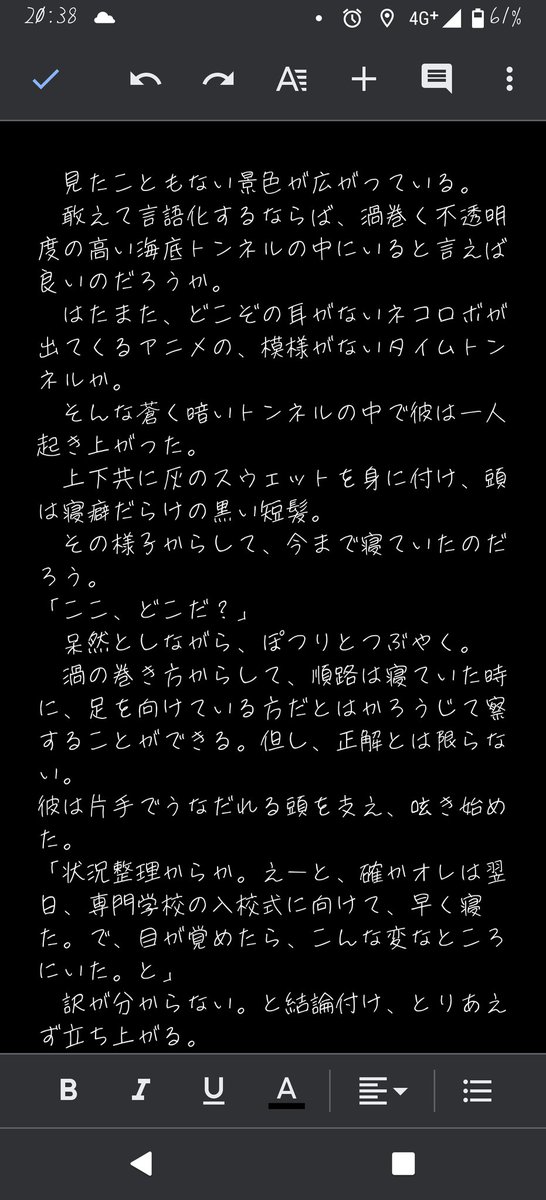 20:38
4G+
61%
見たこともない景色が広がっている。
敢えて言語化するならば、渦巻く不透明
度の高い海底トンネルの中にいると言えば
良いのだろうか。
はたまた、どこぞの耳がないネコロボが
出てくるアニメの、模様がないタイムトン
ネルか。
そんな蒼く暗いトンネルの中で彼は一人
起き上がった。
上下共に灰のスウェットを身に付け、頭
は寝癖だらけの黒い短髪。
その様子からして、今まで寝ていたのだ
ろう。
「ここ、どこだ？」
呆然としながら、ぽつりとつぶやく。
渦の巻き方からして、順路は寝ていた時
に、足を向けている方だとはかろうじて察
することができる。但し、正解とは限らな
い。
彼は片手でうなだれる頭を支え、呟き始め
た。
「状況整理からか。えーと、確かオレは翌
日、専門学校の入校式に向けて、早く寝
た。で、目が覚めたら、こんな変なところ
にいた。と」
訳が分からない。と結論付け、とりあえ
ず立ち上がる。
B
I
U
A